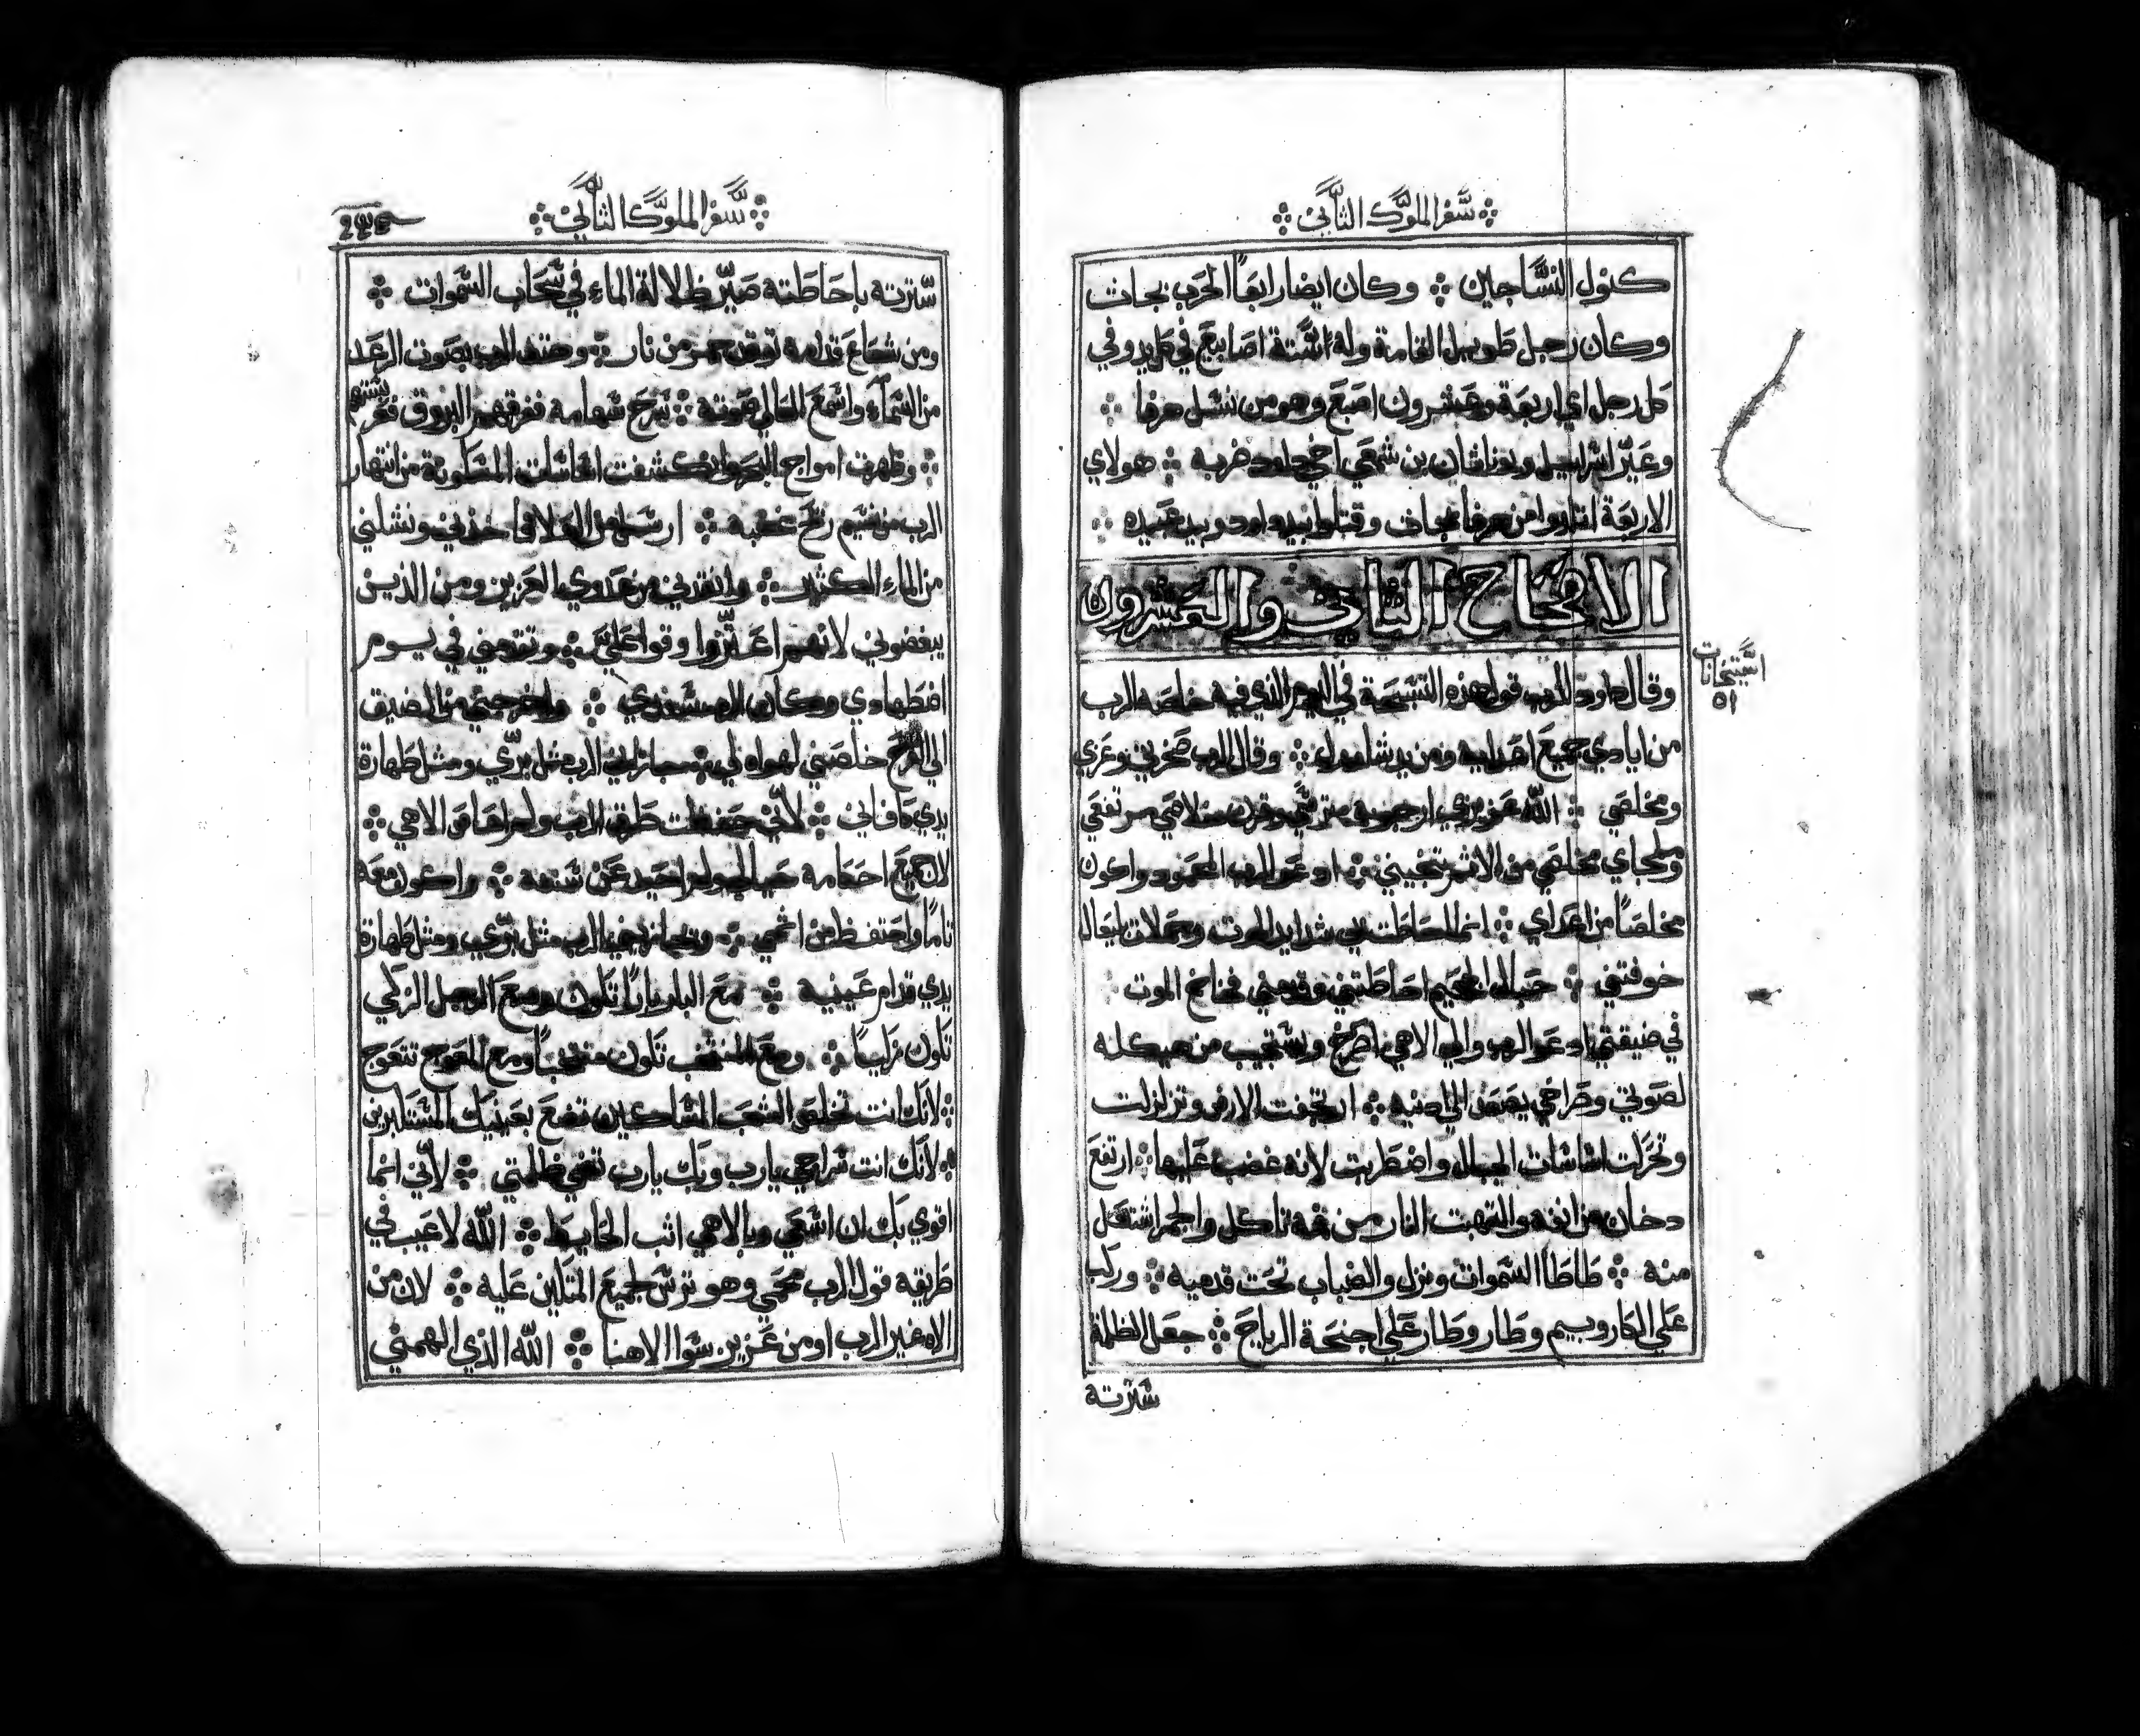 سفر الملوك الثاني
كنول النساجين وكان ايضا رابعًا الحرب بجات
وكان رجل طويل القامة وله ستة اصابيع في كل يد وفي
كل رجل اي اربعة وعشرون اصبع وهو من نسل عرفا
وعير اسرائيل ويوناثان بن شمعي اخي داود ضربه هولاي
الاربعة من عرفا بجاث وقتلوا بيد داود وبيد عبيده
الافتتاح الثاني والعشرون
وقال داود للرب قول هذه التسبحة في اليوم الذي فيه خلصه الرب
من ايادي جميع اعدايه ومن يد شاوول وقال الرب صخرتي وعزي
ومخلصي الله عزيزي ارجوه مترسي وقرن خلاصي مرتفعي
وملجاي مخلصي من الاثم تنجيني ادعو الرب المحمود واكون
مخلصًا من اعداي احاطت بي شدايد الموت بليعال
خوفتني حبال الجحيم احاطتني فخاخ الموت
في ضيقتي ادعو الرب والى الاهي اصرخ ويستجيب من هيكله
لصوتي وصراخي الى ادنيه ارتجفت الارض وتزلزلت
وتحركت اساسات الجبال واضطربت لانه غضب عليها ارتفع
دخان من انفه والتهبت النار من فمه تاكل والجمر اشتعل
منه طاطا السموات ونزل والضباب تحت قدميه وركب
على الكاروبيم وطار وطار على اجنحة الرياح جعل الظلمة
سترته
٥١
سفر الملوك الثاني
سترته باحاطته صير ظلالة الماء في سحاب السموات
ومن شعاع قدامه توقد جمر من نار وهتف الرب بصوت الرعد
من السماء واسمع العالي صوته سرح سهامه ففرقهم البروق
وظهرت امواج البحر وانكشفت اساسات المسكونة من انتهار
الرب من نسيم ريح غضبه ارسل من العلا فاخذني ونشلني
من الماء الكثير وانقذني من عدوي العزيز ومن الذين
يبغضوني لانهم اعتزوا وقووا في يوم
اضطهادي وكان الرب سندي واخرجني من الضيق
الى الفرج خلصني لهواه لي الرب مثل بري ومثل طهارة
يدي كافاني لاني حفظت طرق الرب ولم الاهي
لان جميع احكامه ولم احيد عن سننه واكون معه
تامًا واحتفظ من اثمي ويجازيني الرب مثل بري ومثل طهارة
يدي قدام عينيه مع البار بارًا تكون ومع الرجل الزكي
تكون زكيًا ومع المنتخب تكون منتخبًا ومع المعوج تتعوج
لانك انت تخلص الشعب المساكين تضع بعينيك المستكبرين
لانك انت سراجي يارب وبك يارب تضي ظلمتي لاني انما
اقوي بك ان اسعى وبالاهي اثب الحايط الله لا عيب في
طريقه قول الرب محمي وهو ترس لجميع المتكلين عليه لان من
الاه غير الرب او من عزيز سوا الاهنا الله الذي